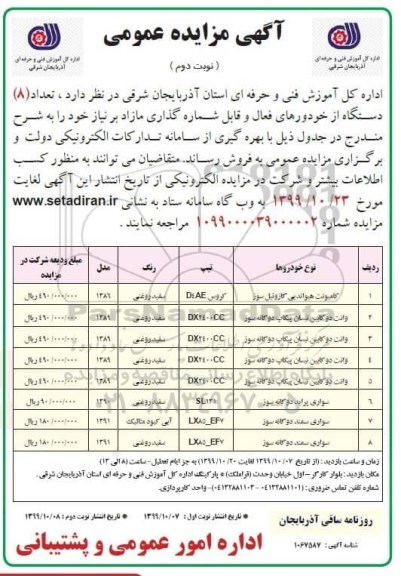 آگهی مزایده عمومی
( نوبت دوم )
اداره کل آموزش فنی و حرفه ای
آذربایجان شرقی
اداره کل آموزش فنی و حرفه ای
آذربایجان شرقی
اداره کل آموزش فنی و حرفه ای استان آذربایجان شرقی در نظر دارد ، تعداد(۸)
دستگاه از خودورهای فعال و قابل شماره گذاری مازاد بر نیاز خود را به شرح
مندرج در جدول ذیل با بهره گیری از سامانه تدارکات الکترونیکی دولت و
برگزاری مزایده عمومی به فروش رساند. متقاضیان می توانند به منظور کسب
اطلاعات بیشتر و شرکت در مزایده الکترونیکی از تاریخ انتشار این آگهی لغایت
مورخ ۱۳۹۹/۱۰/۲۳ به وب گاه سامانه ستاد به نشانی www.setadiran.ir
مزایده شماره ۱۰۹۹۰۰۰۰۳۹۰۰۰۰۰۲ مراجعه نمایند .
ردیف نوع خودروها تیپ رنگ مدل مبلغ ودیعه شرکت در مزایده
۱ کامیونت هیوندایی گازوئیل سوز کروس D4AE سفید روغنی ۱۳۸۶ ۴۹۰/۰۰۰/۰۰۰ ریال
۲ وانت دو کابین نسان پیکاپ دوگانه سوز DX۲۴۰۰CC سفید روغنی ۱۳۸۶ ۴۹۰/۰۰۰/۰۰۰ ریال
۳ وانت دو کابین نسان پیکاپ دوگانه سوز DX۲۴۰۰CC سفید روغنی ۱۳۸۶ ۴۹۰/۰۰۰/۰۰۰ ریال
۴ وانت دو کابین نسان پیکاپ دوگانه سوز DX۲۴۰۰CC سفید روغنی ۱۳۸۶ ۴۹۰/۰۰۰/۰۰۰ ریال
۵ وانت دو کابین نسان پیکاپ دوگانه سوز DX۲۴۰۰CC سفید روغنی ۱۳۸۶ ۴۹۰/۰۰۰/۰۰۰ ریال
۶ سواری پراید دوگانه سوز سفید روغنی ۱۳۹۰ ۹۰/۰۰۰/۰۰۰ ریال
۷ سواری سمند دوگانه سوز LX۸۵_EF۷ آبی کبود متالیک ۱۳۹۱ ۱۸۰/۰۰۰/۰۰۰ ریال
۸ سواری سمند دوگانه سوز LX۸۵_EF۷ سفید روغنی ۱۳۹۱ ۱۸۰/۰۰۰/۰۰۰ ریال
زمان و ساعت بازدید : (از تاریخ ۱۳۹۹/۱۰/۰۷ لغایت ۱۳۹۹/۱۰/۲۰) به جز ایام تعطیل-ساعت (۸ الی ۱۳)
مکان بازدید : بلوار کارگر – اول خیابان وحدت (قراملک) * پارکینگ اداره کل آموزش فنی و حرفه ای استان آذربایجان شرقی.
شماره تلفن تماس ضروری : (۰۴۱۳۲۸۸۱۱۰۱ – ۰۴۱۳۲۸۸۱۱۰۳)- واحد کارپردازی.
روزنامه ساقی آذربایجان
* تاریخ انتشار نوبت اول : ۱۳۹۹/۱۰/۰۷
* تاریخ انتشار نوبت دوم : ۱۳۹۹/۱۰/۰۸
شناسه آگهی : ۱۰۶۷۵۸۷
اداره امور عمومی و پشتیبانی
ParsNamadData